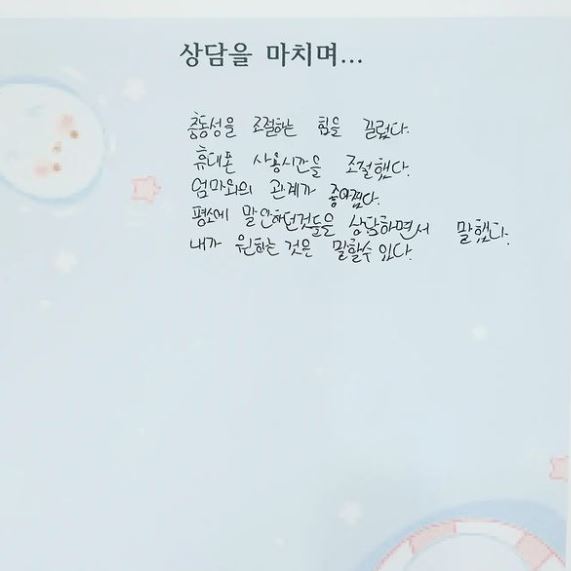 상담을 마치며...
충동성을 조절하는 힘을 길렀다.
휴대폰 사용시간을 조절했다.
엄마와의 관계가 좋아졌다.
평소에 말안하던것들을 상담하면서 말했다.
내가 원하는 것은 말할수 있다.